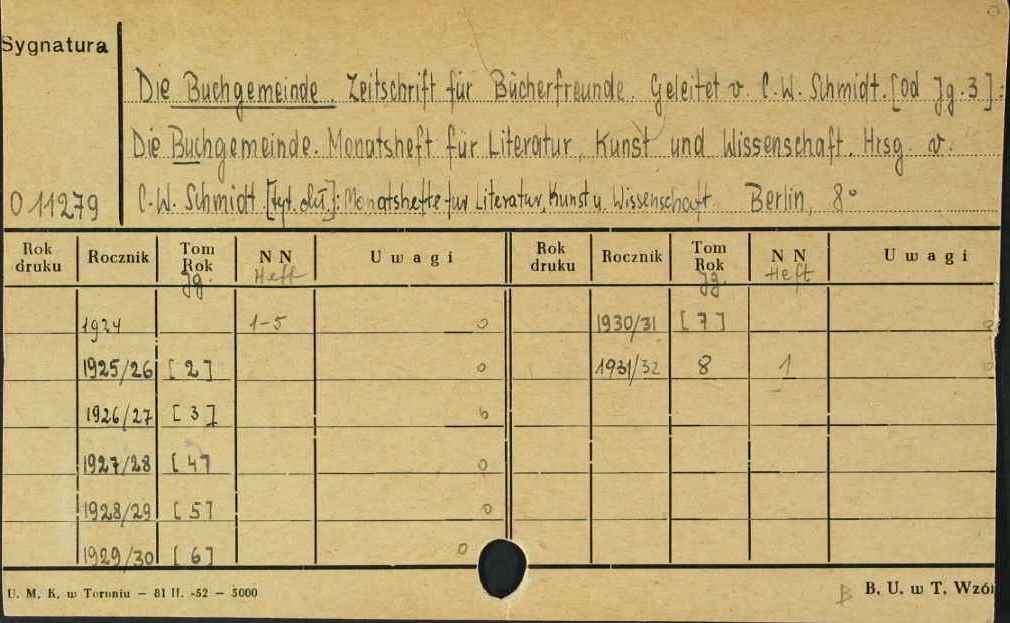 Sygnatura
Die Buchgemeinde. Zeitschrift für Bücherfreunde. Geleitet v. C.W. Schmidt. [od Jg. 3]:
Die Buchgemeinde. Monatsheft für Literatur, Kunst und Wissenschaft. Hrsg. v.
O 11279 C.W. Schmidt. [tyt. okł.]: Monatshefte für Literatur, Kunst u. Wissenschaft. Berlin, 8°
Rok druku Rocznik Tom Rok Jg. NN Heft Uwagi Rok druku Rocznik Tom Rok Jg. NN Heft Uwagi
1924 1-5 0 1930/31 [7] 0
1925/26 [2] 0 1931/32 8 1 0
1926/27 [3] 0
1927/28 [4] 0
1928/29 [5] 0
1929/30 [6] 0
U. M. K. w Toruniu – 81 II. -52 – 5000 B B. U. w T. Wzór